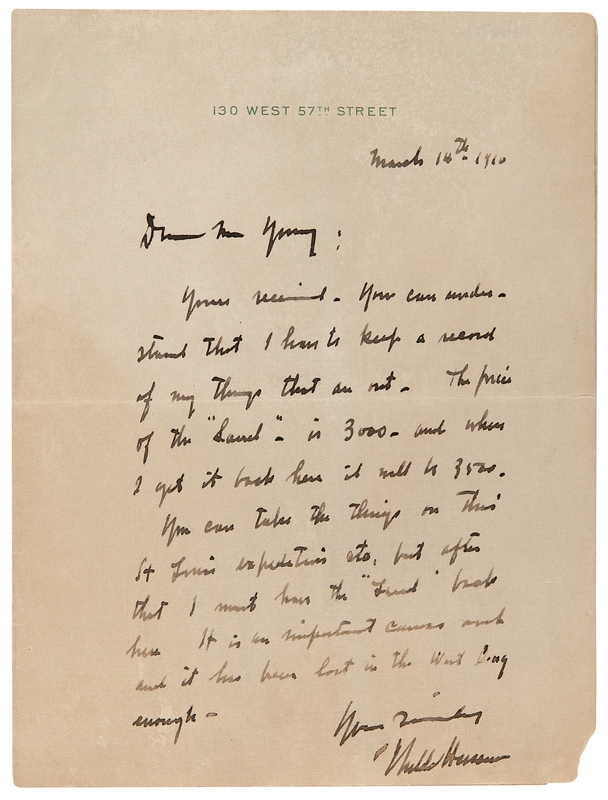 130 WEST 57TH STREET
March 14th 1910
Dear Mr Young:
Yours received. You can under-
stand that I have to keep a record
of my things that are out. The price
of the "Laurel" is 3000 - and when
I get it back here it will be 3500.
You can take the things on this
St Louis expedition etc, but after
that I must have the "Laurel" back
here. It is an important canvas
and it has been lost in the West long
enough -
Yours sincerely
Childe Hassam